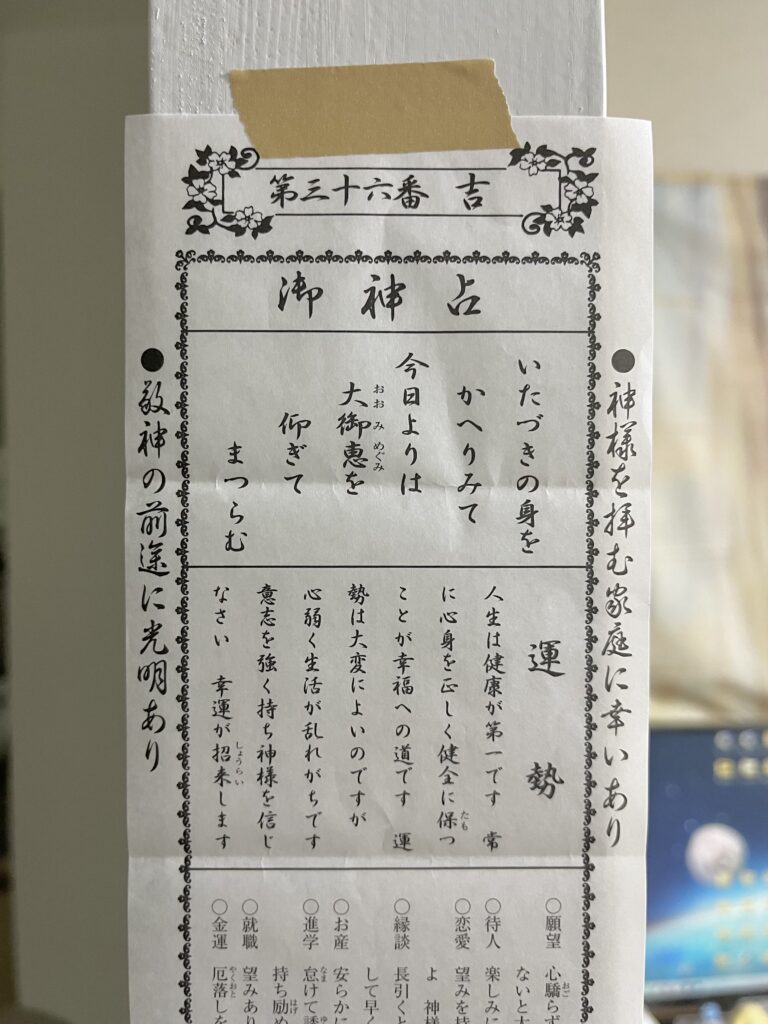 第三十六番 吉
御神占
●神様を拝む家庭に幸いあり
いたづきの身を
かへりみて
今日よりは
おおみめぐみ
大御恵を
仰ぎて
まつらむ
運勢
人生は健康が第一です 常
たも
に心身を正しく健全に保つ
ことが幸福への道です 運
勢は大変によいのですが
心弱く生活が乱れがちです
意志を強く持ち神様を信じ
しょうらい
なさい 幸運が招来します
おご
○願望 心驕らず
ないと
○待人 楽しみに
○恋愛 望みを
よ 神様
○縁談 長引くと
して早く
○お産 安らかに
なま
○進学 怠けて
はげ
持ち励め
○就職 望みあり
やくおと
○金運 厄落しを
●敬神の前途に光明あり